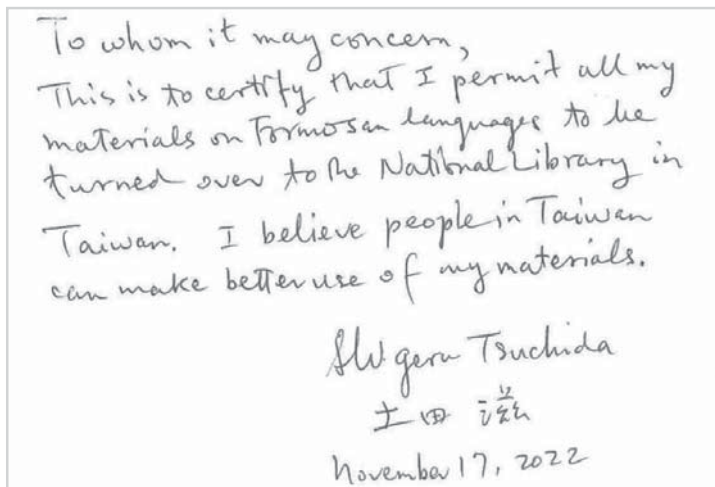 To whom it may concern,
This is to certify that I permit all my
materials on Formosan languages to be
turned over to the National Library in
Taiwan. I believe people in Taiwan
can make better use of my materials.
Shigeru Tsuchida
土田 滋
November 17, 2022